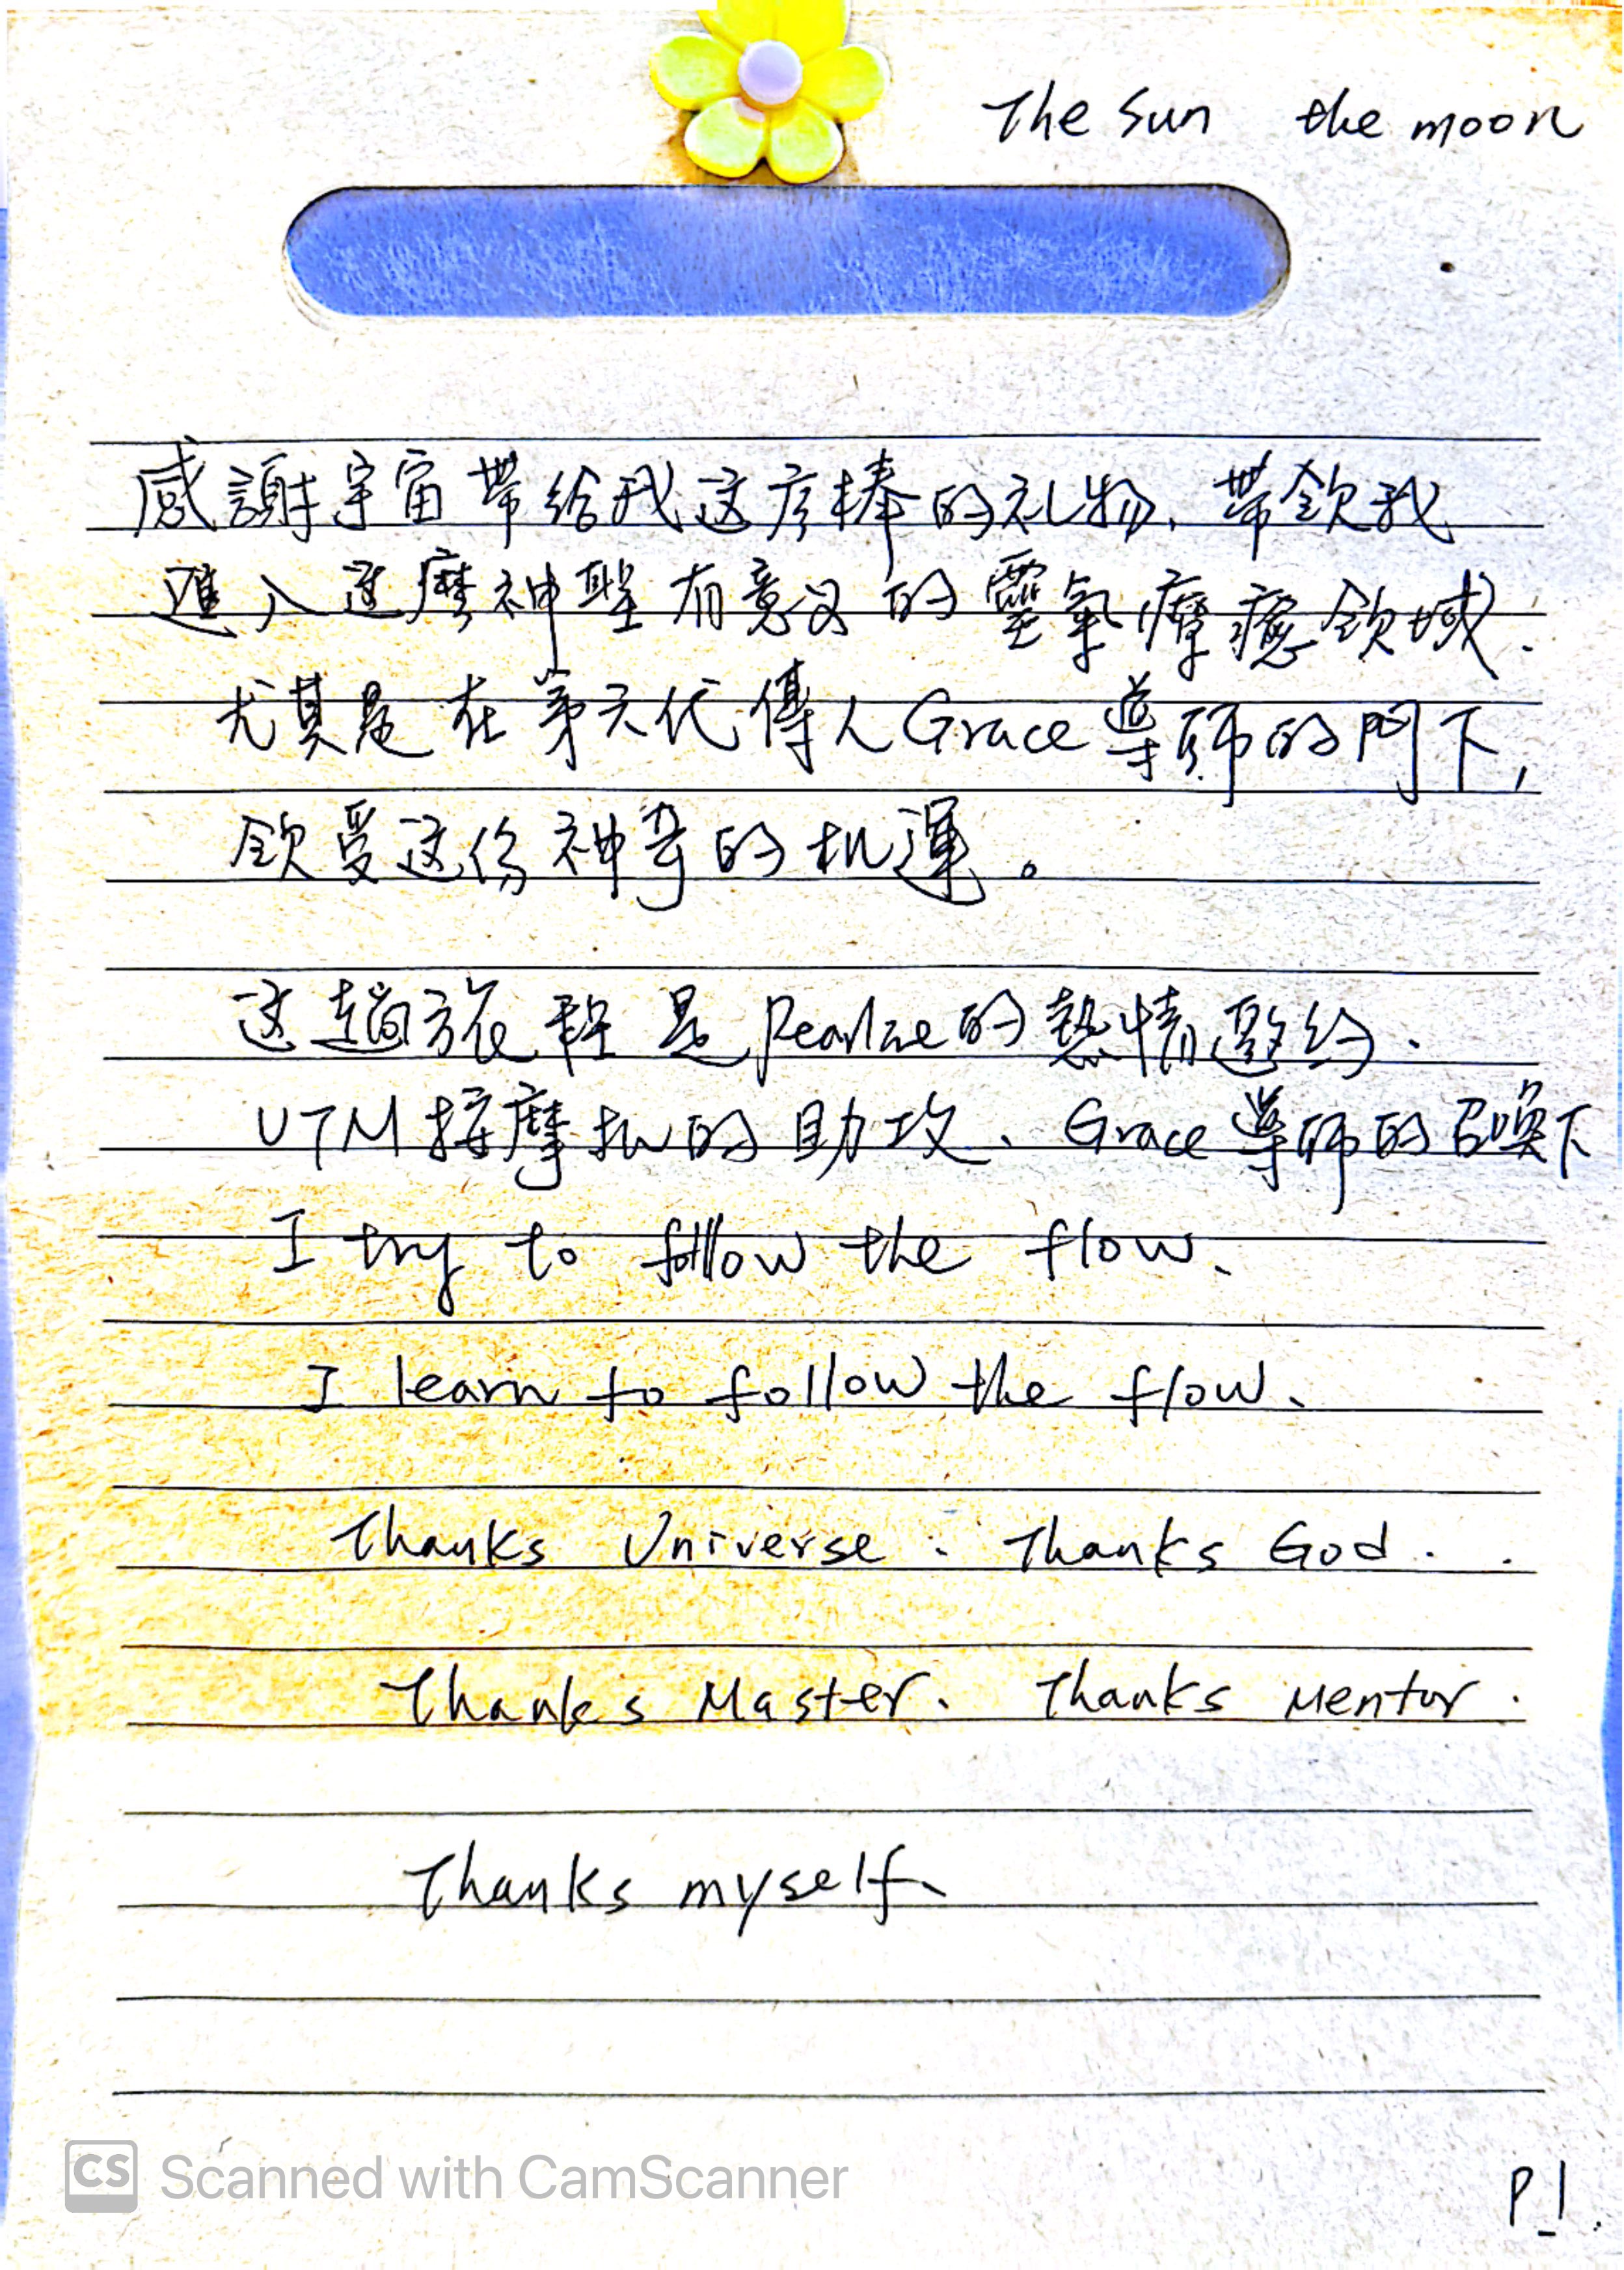 The Sun the moon
感謝宇宙带给我这么棒的礼物、带领我
進入這麼神聖有意义的靈氣療癒领域.
尤其是在第六代傳人Grace導师的門下,
领受这份神奇的机運。
这趟旅程是Pearlne的熱情邀约.
UTM按摩机的助攻、Grace導师的召唤下
I try to follow the flow.
I learn to follow the flow.
Thanks Universe. Thanks God.
Thanks Master. Thanks Mentor.
Thanks myself.
P_1.
CS Scanned with CamScanner